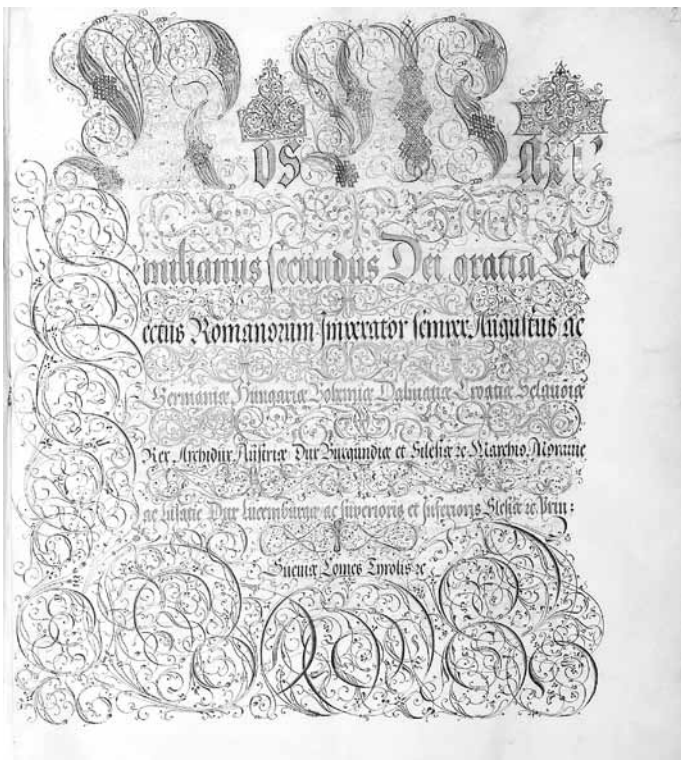 Nos Maxi
milianus secundus Dei gratia El
ectus Romanorum Imperator semper Augustus ac
Germaniæ Hungariæ Bohemiæ Dalmatiæ Croatiæ Sclauoiæ
Rex Archidux Austriæ Dux Burgundiæ et Silesiæ ꝛc Marchio Morauiæ
ac Lusatie Dux Lucemburgæ ac superioris et inferioris Slesiæ ꝛc Prin:
Sueuiæ Comes Tyrolis ꝛc
2